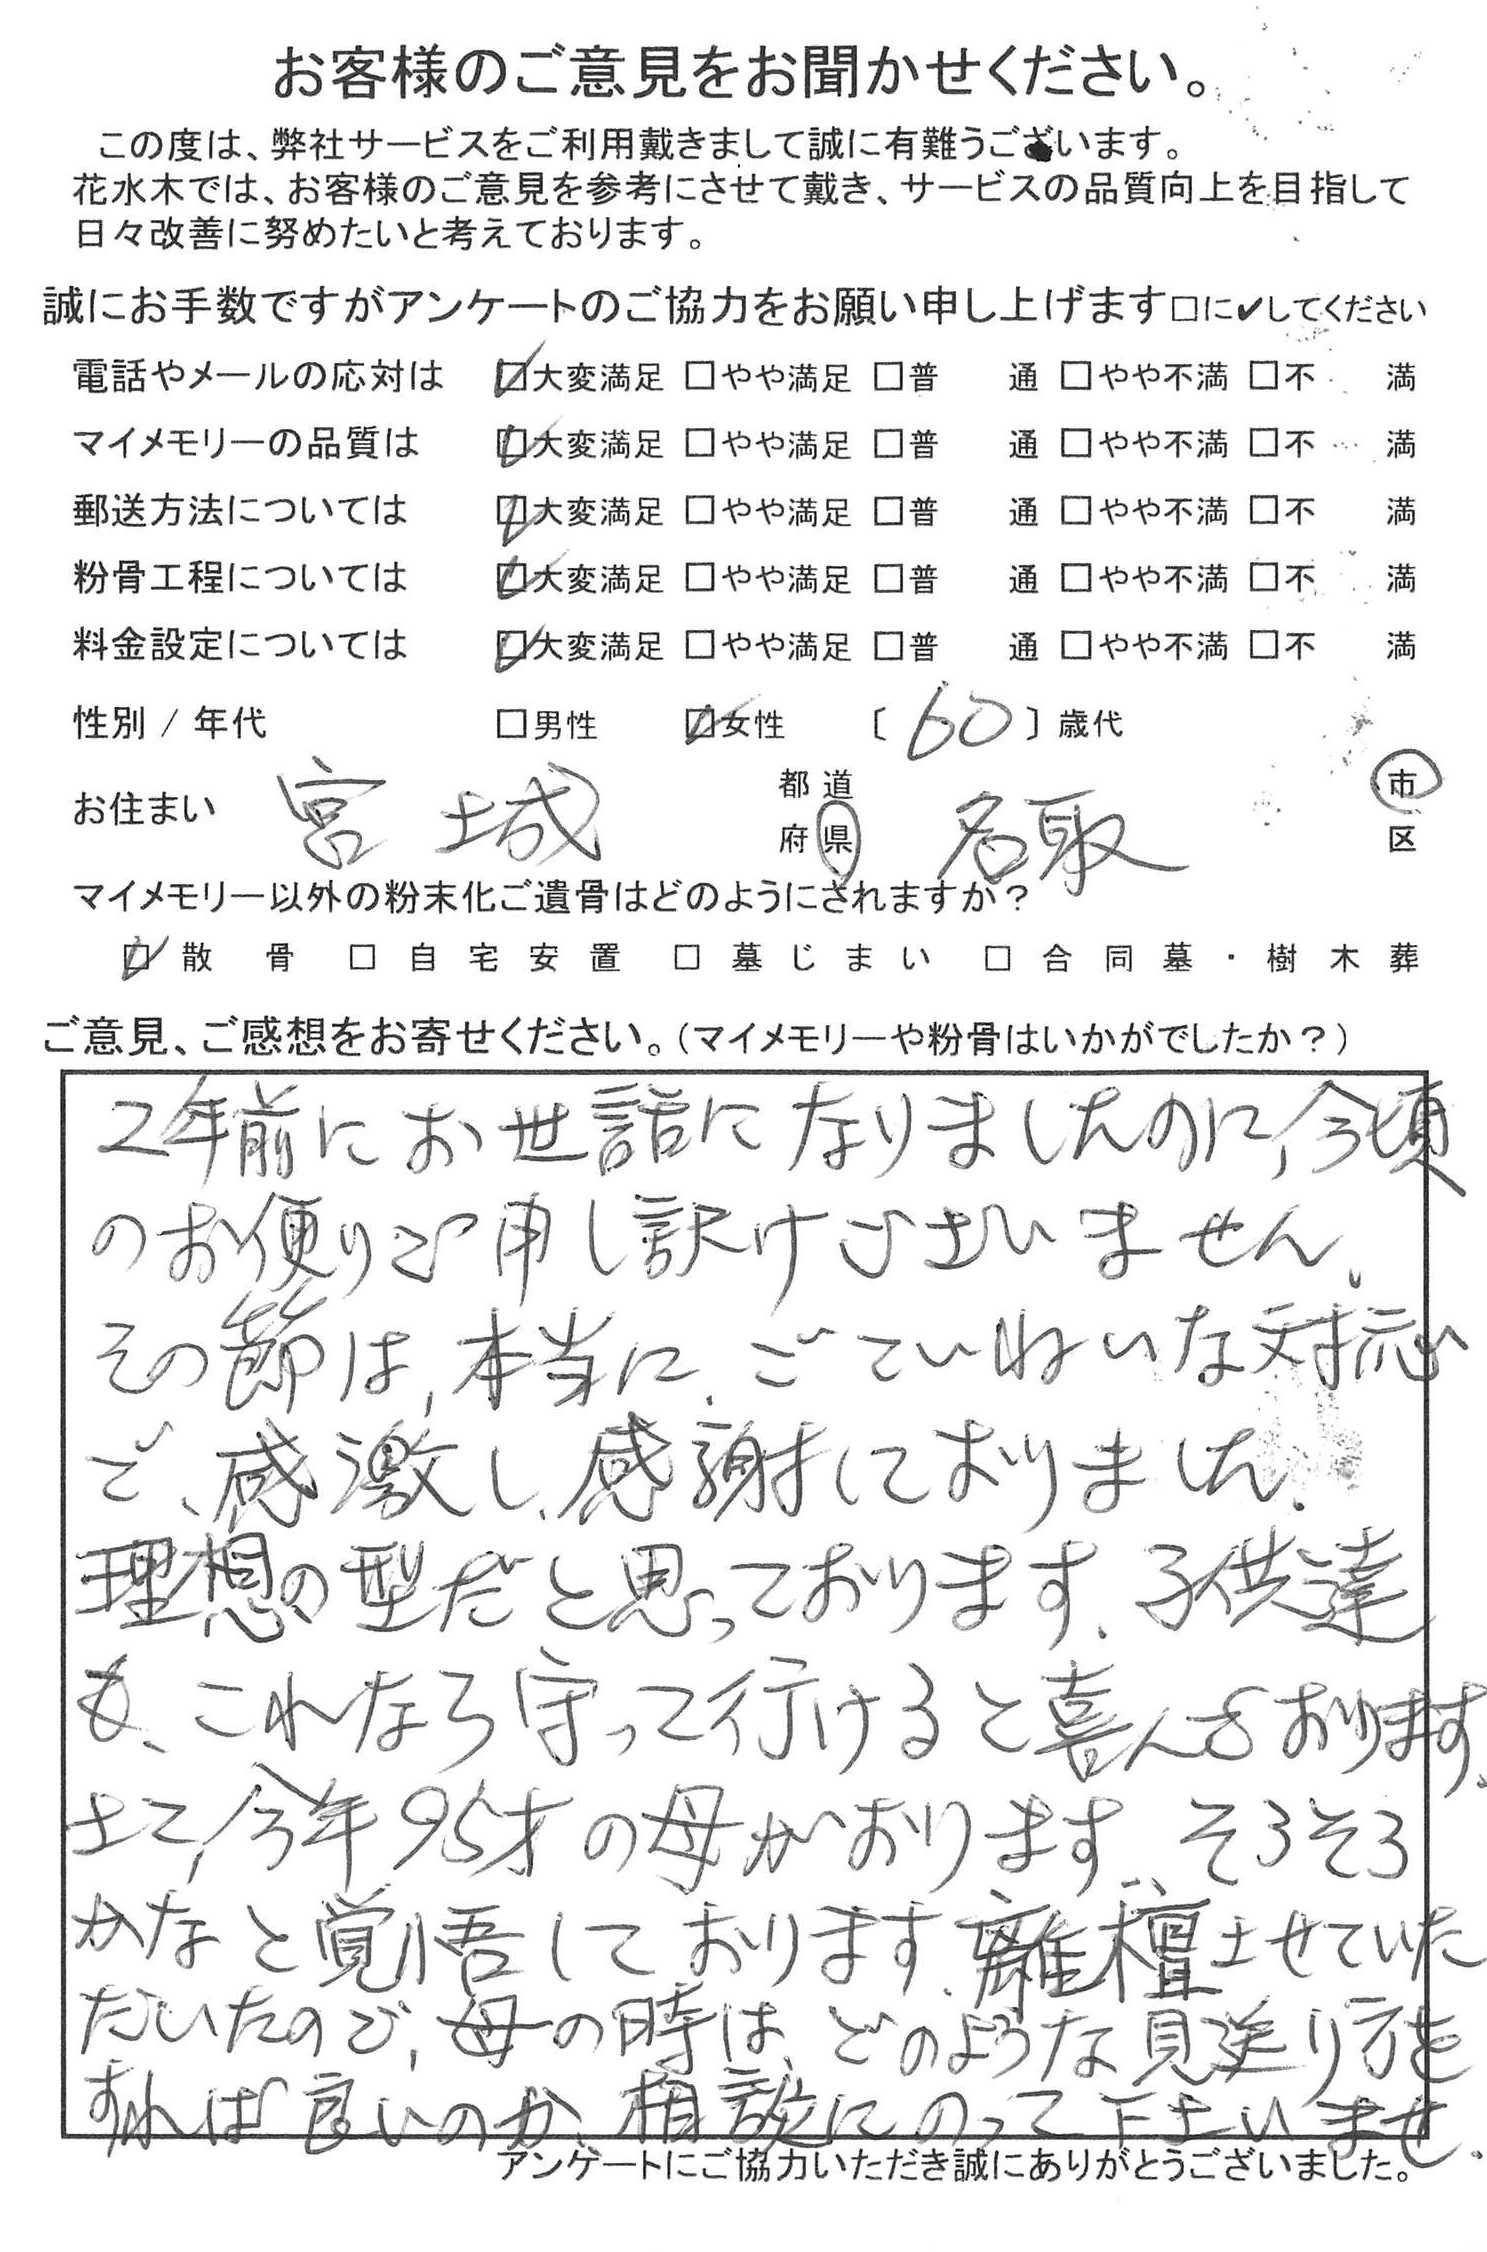 お客様のご意見をお聞かせください。
この度は、弊社サービスをご利用戴きまして誠に有難うございます。
花水木では、お客様のご意見を参考にさせて戴き、サービスの品質向上を目指して
日々改善に努めたいと考えております。
誠にお手数ですがアンケートのご協力をお願い申し上げます□に✔してください
電話やメールの応対は ☑大変満足 □やや満足 □普 通 □やや不満 □不 満
マイメモリーの品質は ☑大変満足 □やや満足 □普 通 □やや不満 □不 満
郵送方法については ☑大変満足 □やや満足 □普 通 □やや不満 □不 満
粉骨工程については ☑大変満足 □やや満足 □普 通 □やや不満 □不 満
料金設定については ☑大変満足 □やや満足 □普 通 □やや不満 □不 満
性別 / 年代 □男性 ☑女性 〔 60 〕歳代
お住まい 宮城 都道府県 名取 市区
マイメモリー以外の粉末化ご遺骨はどのようにされますか?
☑ 散骨 □ 自宅安置 □ 墓じまい □ 合同墓・樹木葬
ご意見、ご感想をお寄せください。(マイメモリーや粉骨はいかがでしたか?)
2年前にお世話になりましたのに、今頃
のお便りで申し訳けございません。
その節は、本当に、ごていねいな対応
で、感激し、感謝しておりました。
理想の型だと思っております。子供達
も、これなら守って行けると喜んでおります。
さて、今年95才の母がおります。そろそろ
かなと覚悟しております。離檀させていた
だいたので、母の時は、どのような見送り方を
すれば良いのか、相談にのって下さいませ。
アンケートにご協力いただき誠にありがとうございました。